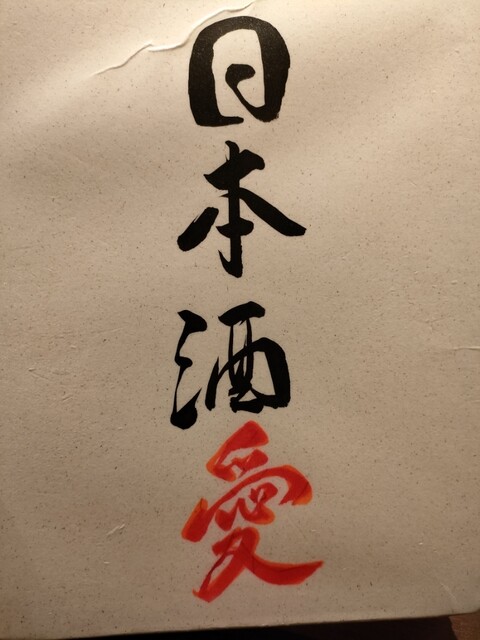 日本酒愛